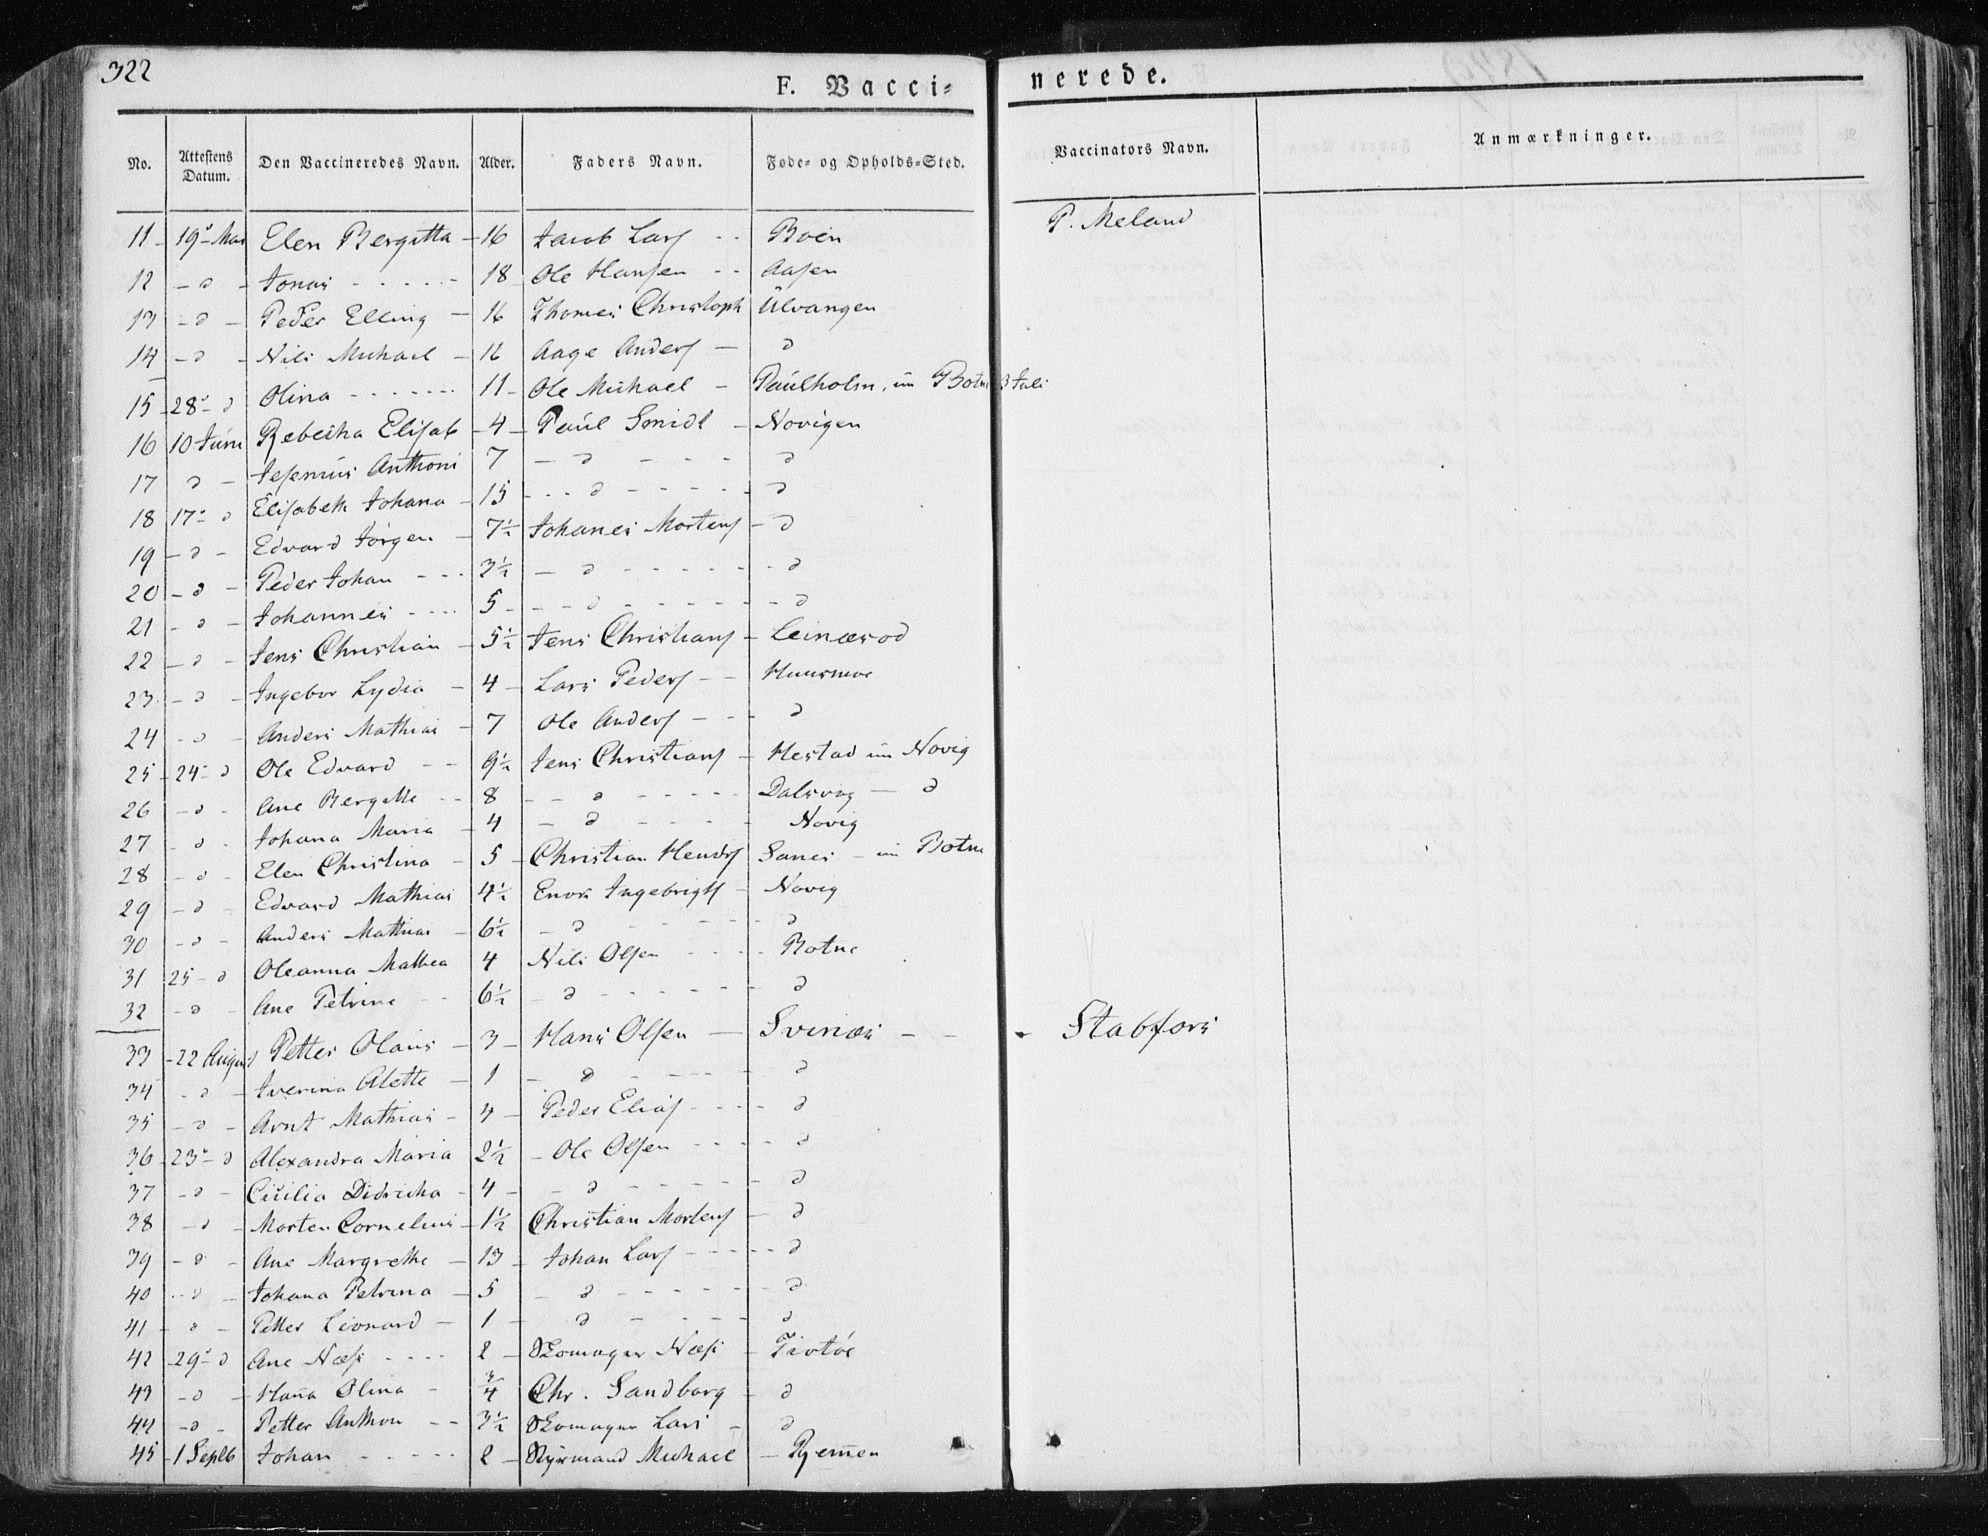 322
F. Vacci-nerede.
No. Attestens Datum. Den Vaccineredes Navn. Alder. Faders Navn. Føde- og Opholds-Sted. Vaccinators Navn. Anmærkninger.
11 - 19de Mai Elen Bergitta - 16 Jacob Lars - - Boen P. Meland
12 - d - Jonas - - - - 18 Ole Hansen - - Aasen
13 - d - Peder Elling - 16 Thomas Christoph Ulvangen
14 - d - Nils Michael - 12 Aage Anders - d
15 - 28de d Olina - - - - 11 - Ole Michael - Paulholm, in Botne 3 Juli
16 10 Juni Rebecka Elisab - 4 - Paul Smidt - Novigen
17 d - Jesenius Anthoni 7 - d - - - d
18 17de d Elisabeth Johana - 15 - - - d - - - - d
19 - d - Edvard Jørgen - 7½ Johanes Mortens - d
20 - d - Peder Johan - - - 3½ - d - - - - d
21 - d - Johannes - - - 5 - - - d - - - - d
22 - d - Jens Christian - 5½ Jens Christians - Leinæsod
23 - d - Ingebor Lydia - 4 - Lars Peders - - Huusmoe
24 - d - Anders Mathias - 7 Ole Anders - - - d
25 - 24de d Ole Edvard - - 9½ Jens Christians - Hestad in Novig
26 - d - Ane Bergitte - - 8 - - d - - - - Dalsvag - d
27 - d - Johana Maria - 4 - d - - - - Novig
28 - d - Elen Christina - 5 - Christian Hendrs Sanes - in Botne
29 - d - Edvard Mathias 4½ Enok Ingebrigts - Novig
30 - d - Anders Mathias - 6½ - d - - - - d
31 25 - d Oleanna Mathea 4 Nils Olsen - - - - Botne
32 - d - Ane Petrine - - 6½ - d - - - - - d
33 - 22 August Petter Olaus - 3 - Hans Olsen - Svinæs - - - Stabfors
34 - d - Iverina Alette - 1 - d - - - - d
35 - d - Arnt Mathias - 4 - Peder Elias - - - - d
36 - 23de d Alexandra Maria 2½ - Ole Olsen - - - - d
37 - d - Cicilia Didricha - 4 - - d - - - - - d
38 - d - Morten Cornelius - 1½ Christian Mortens - d
39 - d - Ane Margrethe - 13 - Johan Lars - - - - - d
40 - d - Johana Petrina - 5 - d - - - - - d
41 - d - Petter Leonard - 1 - d - - - - d
42 - 29de d Ane Næss - - - - 2 - Skomager Næss - Tiøtøe
43 - d - Hana Olina - ¾ Chr. Sandborg - d
44 - d - Petter Anthon - - 3½ Skomager Lars - d
45 - 1 Septb Johan - - - - - 2 - Styrmand Michael - Remen